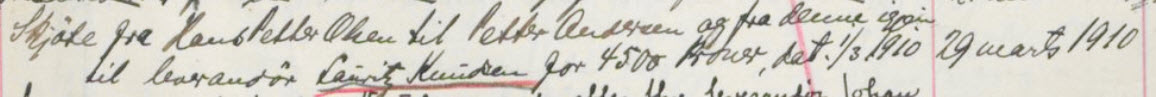 Skjöte fra Hans Petter Olsen til Petter Andersen og fra denne igjen
til leverandör Lauritz Knudsen for 4500 Kroner, dat. 1/3 1910 29 marts 1910
leverandör Johan